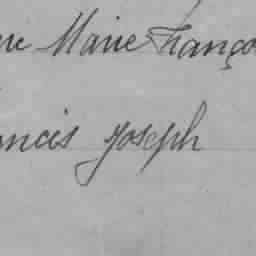 re Marie Franço
ncis Joseph